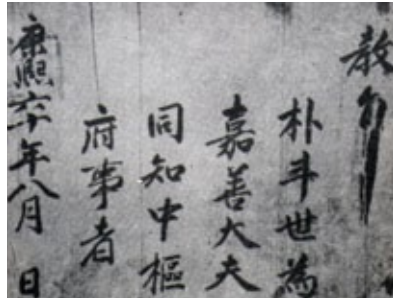 教旨
朴斗世為
嘉善大夫
同知中樞
府事者
康熙六十年八月 日